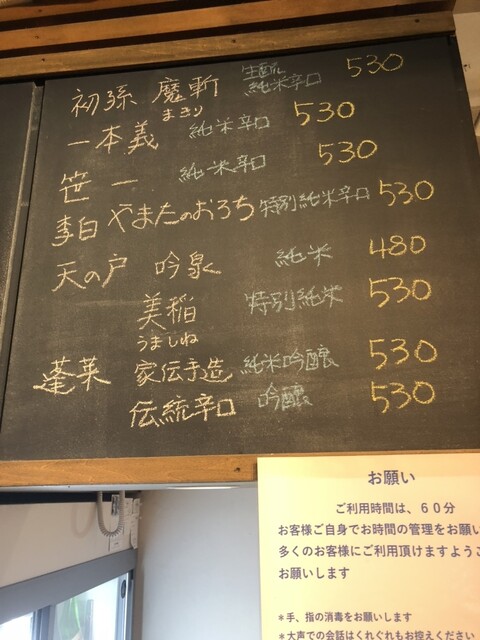 初孫 魔斬 生酛純米辛口 530
まきり
一本義 純米辛口 530
笹一 純米辛口 530
李白 やまたのおろち 特別純米辛口 530
天の戸 吟泉 純米 480
美稲 特別純米 530
うましね
蓬莱 家伝手造 純米吟醸 530
伝統辛口 吟醸 530
お願い
ご利用時間は、60分
お客様ご自身でお時間の管理をお願い
多くのお客様にご利用頂けますようご
お願いします
*手、指の消毒をお願いします
*大声での会話はくれぐれもお控えください